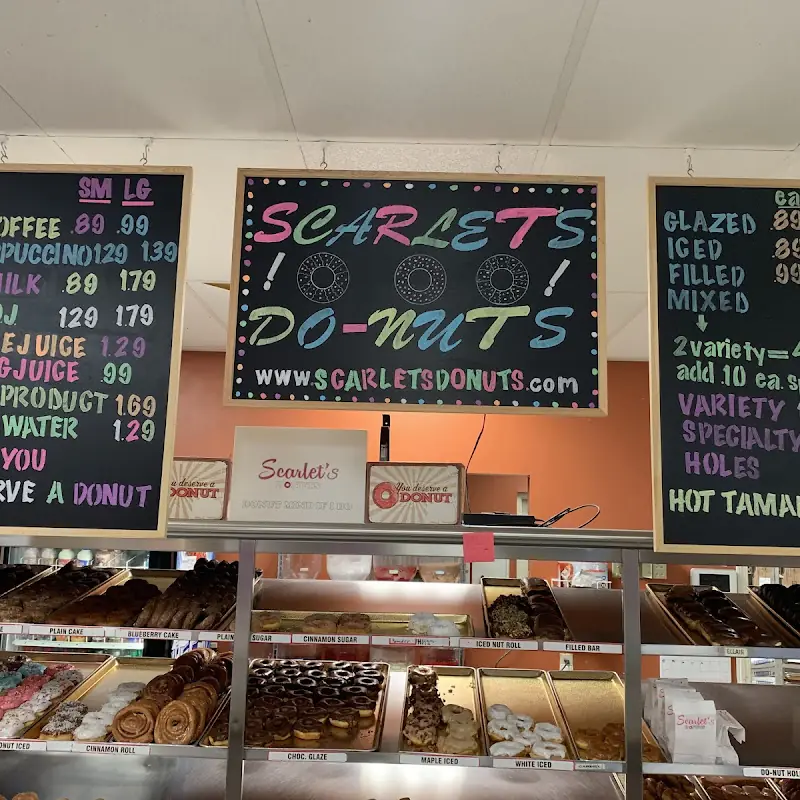 SM LG
OFFEE .89 .99
PUCCINO 129 139
ILK .89 1.79
OJ 129 1.79
E JUICE 1.29
GJUICE .99
PRODUCT 1.69
WATER 1.29
YOU
RVE A DONUT
SCARLETS
! !
DO-NUTS
WWW.SCARLETSDONUTS.com
ea
GLAZED .89
ICED .89
FILLED .99
MIXED
2 variety=
add .10 ea.
VARIETY
SPECIALTY
HOLES
HOT TAMA
you deserve a
DONUT
Scarlet's
You deserve a
DONUT
PLAIN CAKE
BLUEBERRY CAKE
PLAIN
SUGAR
CINNAMON SUGAR
ICED NUT ROLL
FILLED BAR
ONUT ICED
CINNAMON ROLL
CHOC. GLAZE
MAPLE ICED
WHITE ICED
Scarlet's
DO-NUT HOL